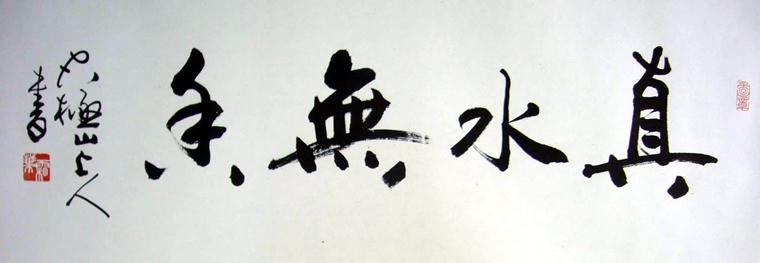 真水無香
極山上人
書